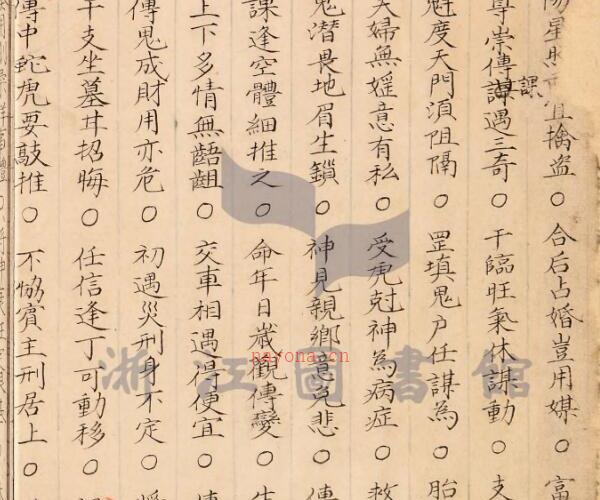 陽星照宜擒盜○合后占婚豈用媒○富
尊崇傳課遇三奇○干臨旺氣休謀動○支
魁度天門湏阻隔○罡填鬼户任謀為○胎
夫婦無婬意有私○受虎尅神為病症○救
鬼潜畏地眉生鎖○神見親鄉意免悲○傳
課逢空體細推之○命年日歲觀傳變○
上下多情無齬齟○交車相遇得便宜○傳
傳鬼成財用亦危○初遇災刑身不定○
干支坐墓甘招晦○任信逢丁可動移○
傳中蛇虎要敲推○不協賓主刑居上○
浙江圖書館
nayona.cn